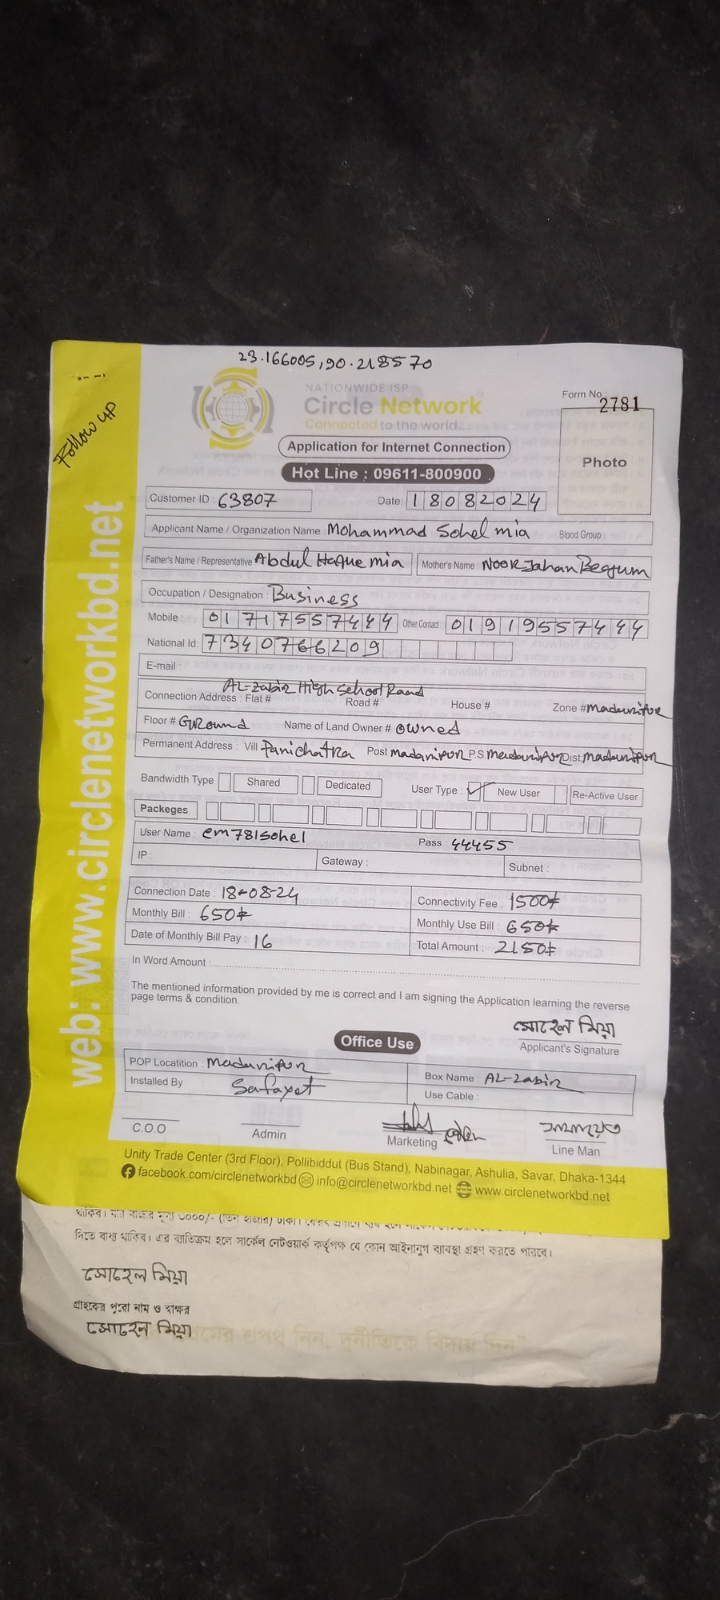 23.166005,90.218570
Follow UP
NATIONWIDE ISP
Circle Network
Connected to the world...
Form No. 2781
Photo
Application for Internet Connection
Hot Line : 09611-800900
Customer ID : 63807 Date : 18082024
Applicant Name / Organization Name : Mohammad Sohel mia Blood Group :
Father's Name / Representative Abdul Haque mia Mother's Name NOOR Jahan Begum
Occupation / Designation : Business
Mobile : 01717557444 Other Contact : 01919557444
National Id : 7340766209
E-mail :
AL-Zabir High School Road
Connection Address : Flat # Road # House # Zone # madaripur
Floor # GRound Name of Land Owner # owned
Permanent Address : Vill Panichatra Post madaripur P.S madaripur Dist. madaripur
Bandwidth Type Shared Dedicated User Type : New User Re-Active User
Packeges
User Name : em781sohel Pass : 44455
IP : Gateway : Subnet :
Connection Date : 18-08-24 Connectivity Fee : 1500৳
Monthly Bill : 650৳ Monthly Use Bill : 650৳
Date of Monthly Bill Pay : 16 Total Amount : 2150৳
In Word Amount :
The mentioned information provided by me is correct and I am signing the Application learning the reverse
page terms & condition.
সোহেল মিয়া
Applicant's Signature
Office Use
POP Locatition : madaripur Box Name : AL-Zabir
Installed By : Safayet Use Cable :
C.O.O Admin Marketing Line Man
Unity Trade Center (3rd Floor), Pollibiddut (Bus Stand), Nabinagar, Ashulia, Savar, Dhaka-1344
facebook.com/circlenetworkbd info@circlenetworkbd.net www.circlenetworkbd.net
web: www.circlenetworkbd.net
দিতে বাধ্য থাকিব। এর ব্যতিক্রম হলে সার্কেল নেটওয়ার্ক কর্তৃপক্ষ যে কোন আইনানুগ ব্যবস্থা গ্রহণ করতে পারবে।
সোহেল মিয়া
গ্রাহকের পুরো নাম ও স্বাক্ষর
সোহেল মিয়া
শপথ নিন, দুর্নীতিকে বিদায় দিন"